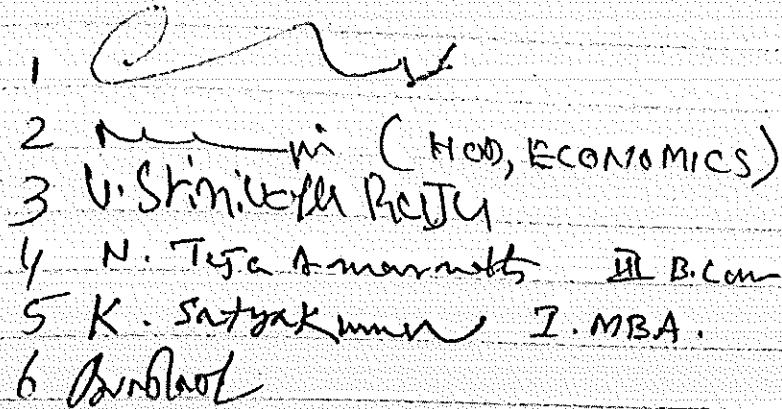 1
2 (HOD, ECONOMICS)
3 V. Srinivasa Raju
4 N. Teja Amarnath III B.Com
5 K. Satyakumar I. MBA.
6